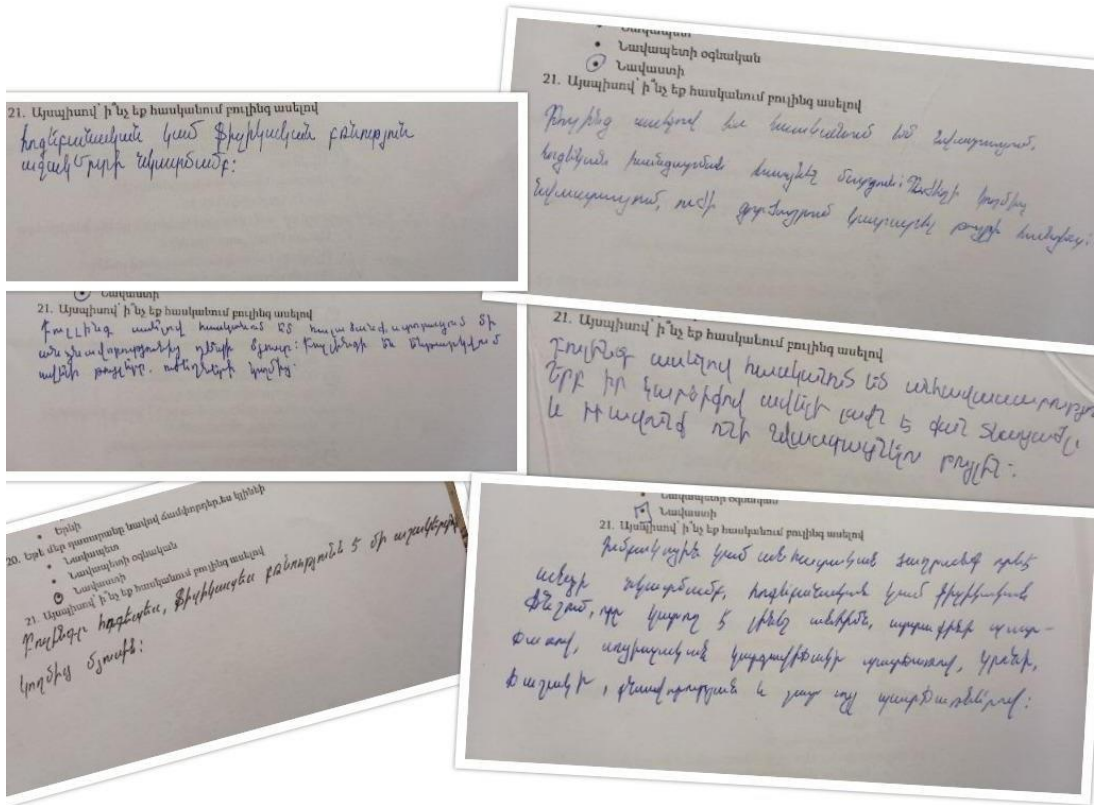 21. Այսպիսով՝ ի՞նչ եք հասկանում բուլինգ ասելով
հոգեբանական կամ ֆիզիկական բռնություն
աշակերտի նկատմամբ:
Նավապետ
Նավապետի օգնական
Նավաստի
21. Այսպիսով՝ ի՞նչ եք հասկանում բուլինգ ասելով
Բուլինգ ասելով ես հասկանում եմ նվաստացում,
հոգեկան հասցնել մարդուն: Ուժեղի կողմից
նվաստացում, ուժի գործադրում կատարվել թույլի հանդեպ:
Նավաստի
21. Այսպիսով՝ ի՞նչ եք հասկանում բուլինգ ասելով
Բուլլինգ ասելով հասկանում եմ մի
անձնավորությունից դեպի մյուսը: Բուլինգի են ենթարկվում
ավելի թույլերը. ուժեղների կողմից.
21. Այսպիսով՝ ի՞նչ եք հասկանում բուլինգ ասելով
Բուլինգ ասելով հասկանում եմ
երբ իր կարծիքով ավելի լավն է քան
և իրավունք ունի նվաստացնելու թույլին:
Երևի
20. Եթե մեր դասարանը նավով ճամփորդեր, ես կլինեի
Նավապետ
Նավապետի օգնական
Նավաստի
21. Այսպիսով՝ ի՞նչ եք հասկանում բուլինգ ասելով
Բուլինգը հոգեպես, ֆիզիկապես բռնությունն է մի աշակերտի
կողմից մյուսին:
Նավապետի օգնական
Նավաստի
21. Այսպիսով՝ ի՞նչ եք հասկանում բուլինգ ասելով
Խմբակային կամ անհատական ծաղրանք որևէ
անձի նկատմամբ, հոգեբանական կամ ֆիզիկական
ճնշում, որը կարող է լինել անհիմն, արտաքինի պատ-
ճառով, սոցիալական կարգավիճակի պատճառով, կրոնի,
ճաշակի, բնավորության և շատ այլ պատճառներով: